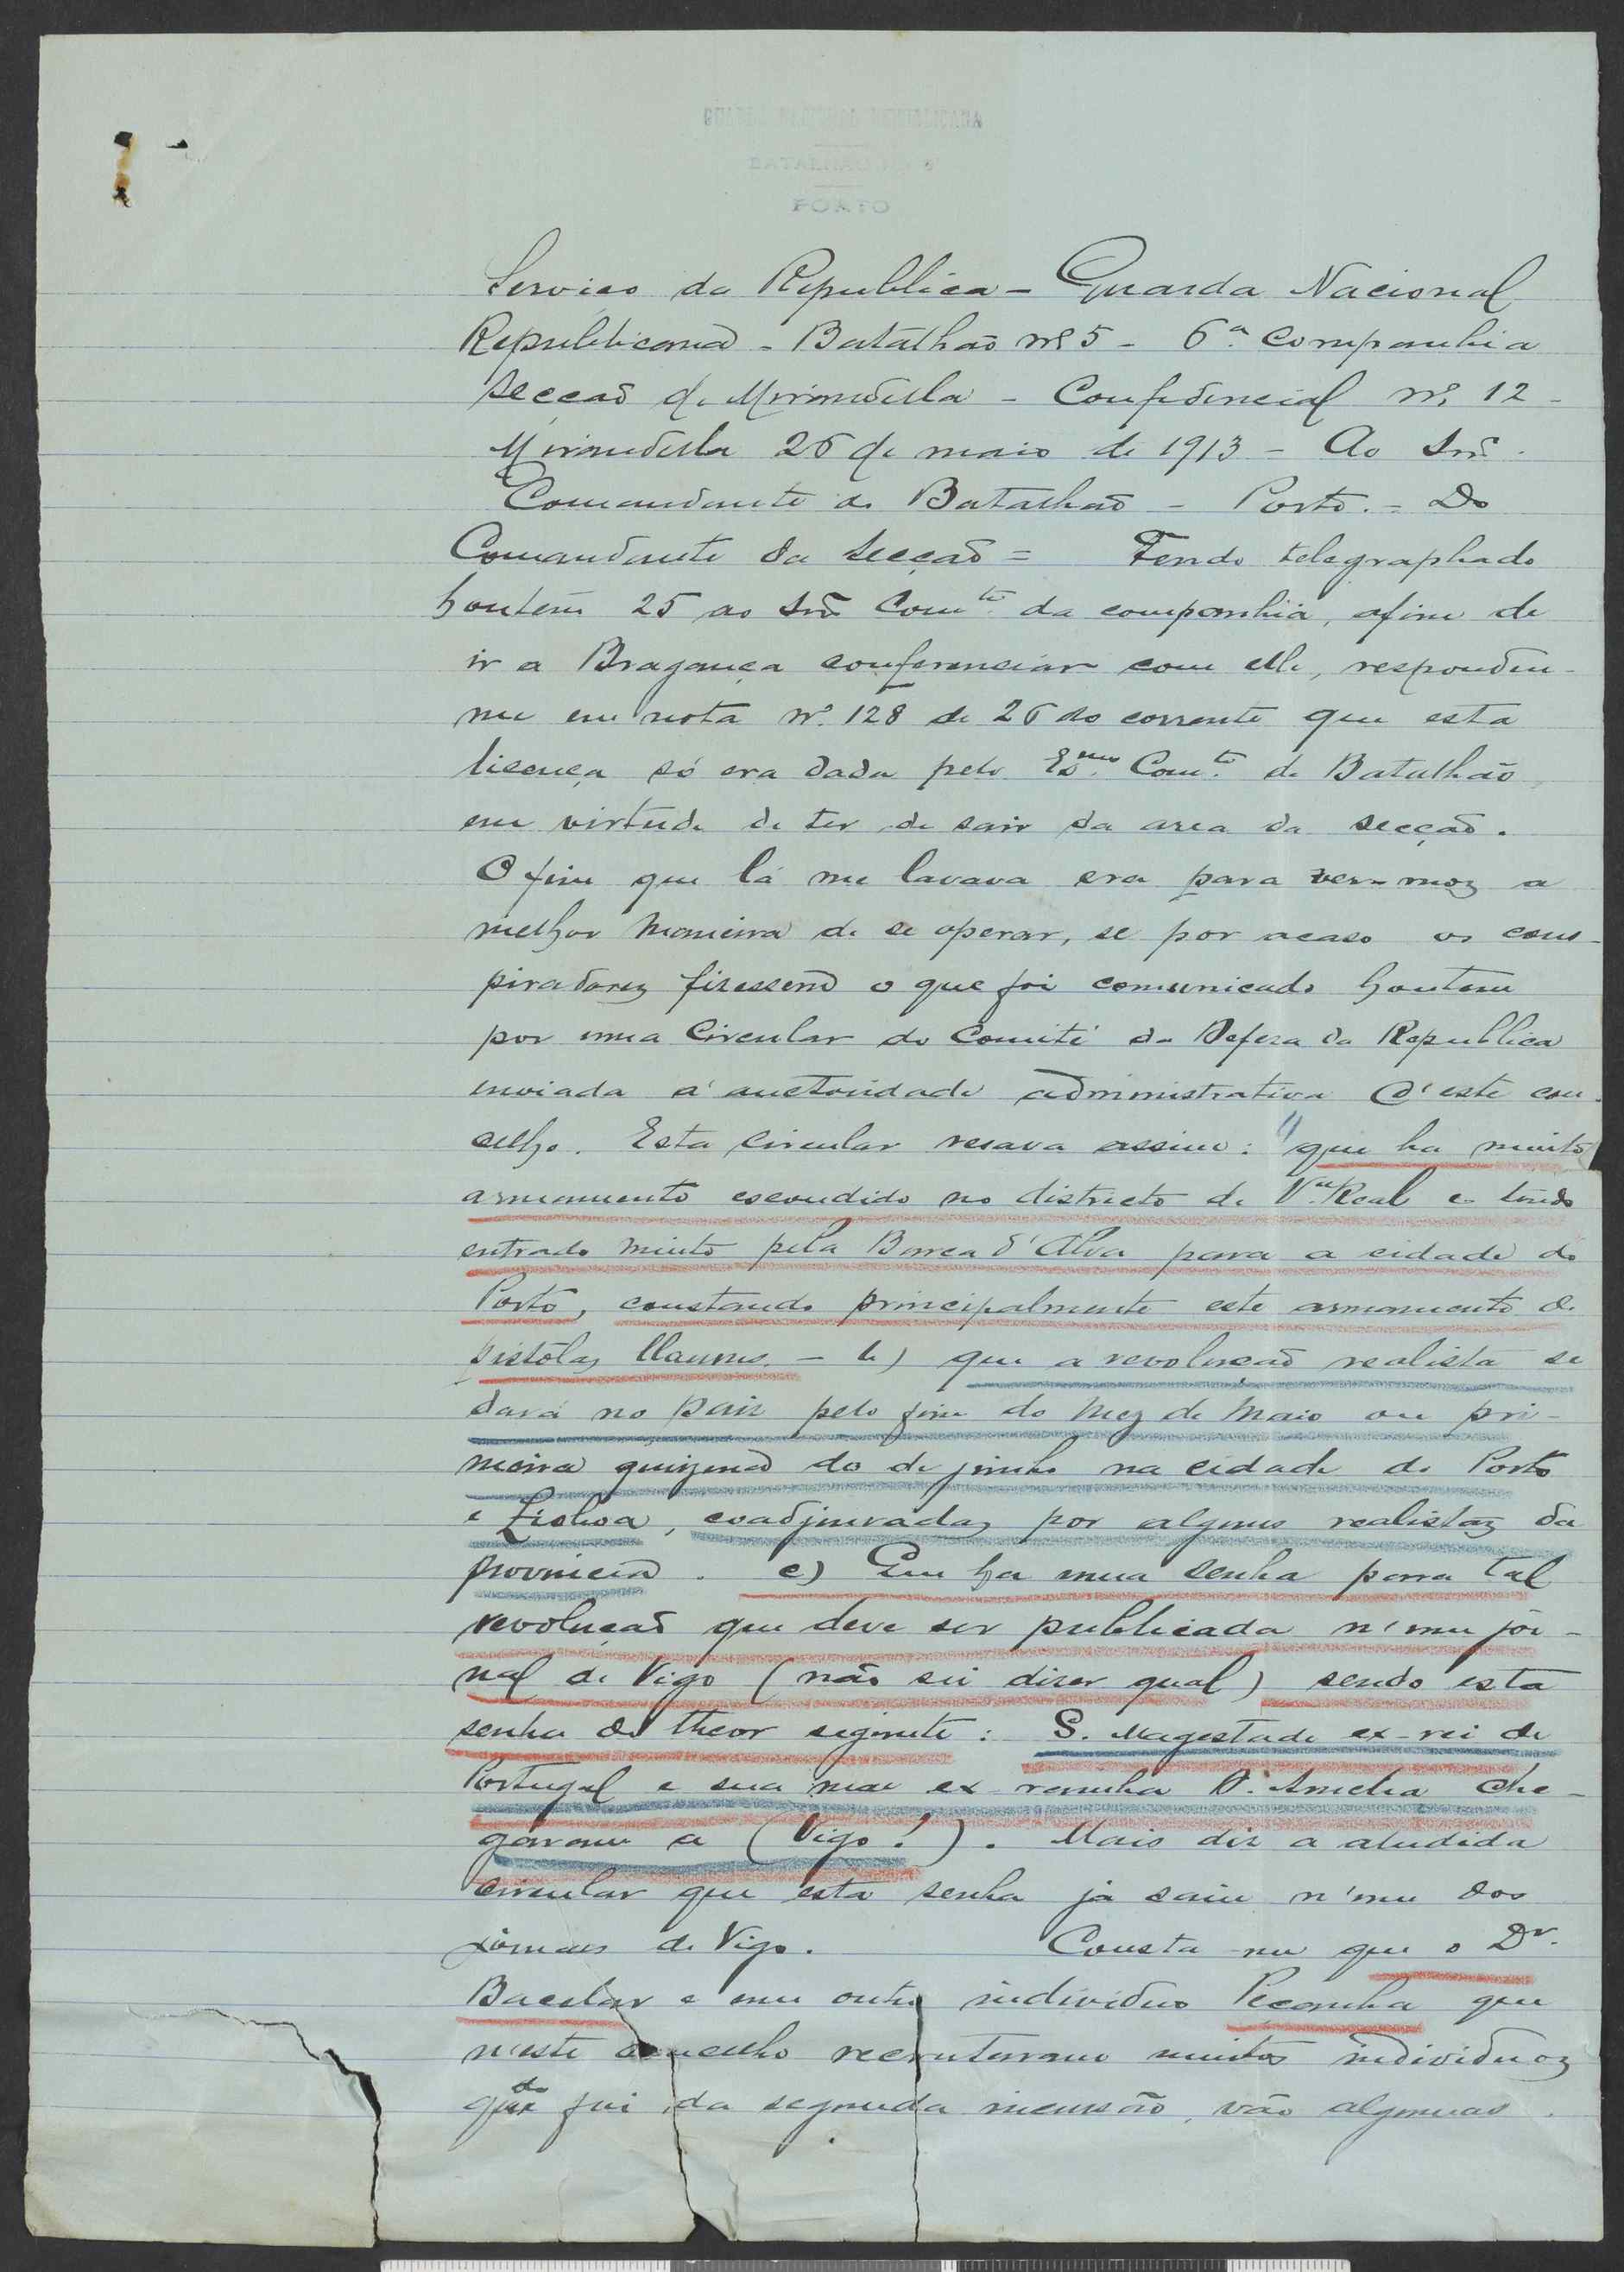 GUARDA NACIONAL REPUBLICANA
BATALHÃO Nº 5
PORTO
Serviço da Republica - Guarda Nacional
Republicana - Batalhão nº 5 - 6ª Companhia
Secção de Mirandella - Confidencial nº 12 -
Mirandella 26 de maio de 1913 - Ao Snr.
Comandante do Batalhão - Porto. = Do
Comandante da Secção = Tendo telegraphado
hontem 25 ao Snr Comte da companhia, afim de
ir a Bragança conferenciar com elle, respondeu-
me em nota nº 128 de 26 do corrente que esta
licença só era dada pelo Exmo Comte do Batalhão
em virtude de ter de sair da area da secção.
O fim que lá me lavava era para ver-moz a
melhor maneira de se operar, se por acaso os cons-
piradorez fizessem o que foi comunicado hontem
por uma Circular do Comité da Defeza da Republica
enviada á auctoridade administrativa d'este con-
celho. Esta circular resava assim: "que ha muito
armamento escondido no districto de Va Real e tendo
entrado muito pela Barca d'Alva para a cidade do
Porto, constando principalmente este armamento de
pistolaz Mauser. - b) que a revolução realista se
dará no paiz pelo fim do mez de Maio ou pri-
meira quinzena do de junho na cidade do Porto
e Lisboa, coadjuvadaz por alguns realistaz da
provincia. c) Que ha uma senha para tal
revolução que deve ser publicada n'um jor-
nal de Vigo (não sei dizer qual) sendo esta
senha do theor seguinte: S. Magestade ex-rei de
Portugal e sua mãe ex-rainha D. Amelia che-
garam a (Vigo!). Mais diz a aludida
circular que esta senha já saiu n'um dos
jornaes de Vigo. Consta-me que o Dr.
Bacelar e um outro individuo Peçanha que
n'este concelho recrutaram muitos individuoz
qdo foi da segunda incursão, vão algumas